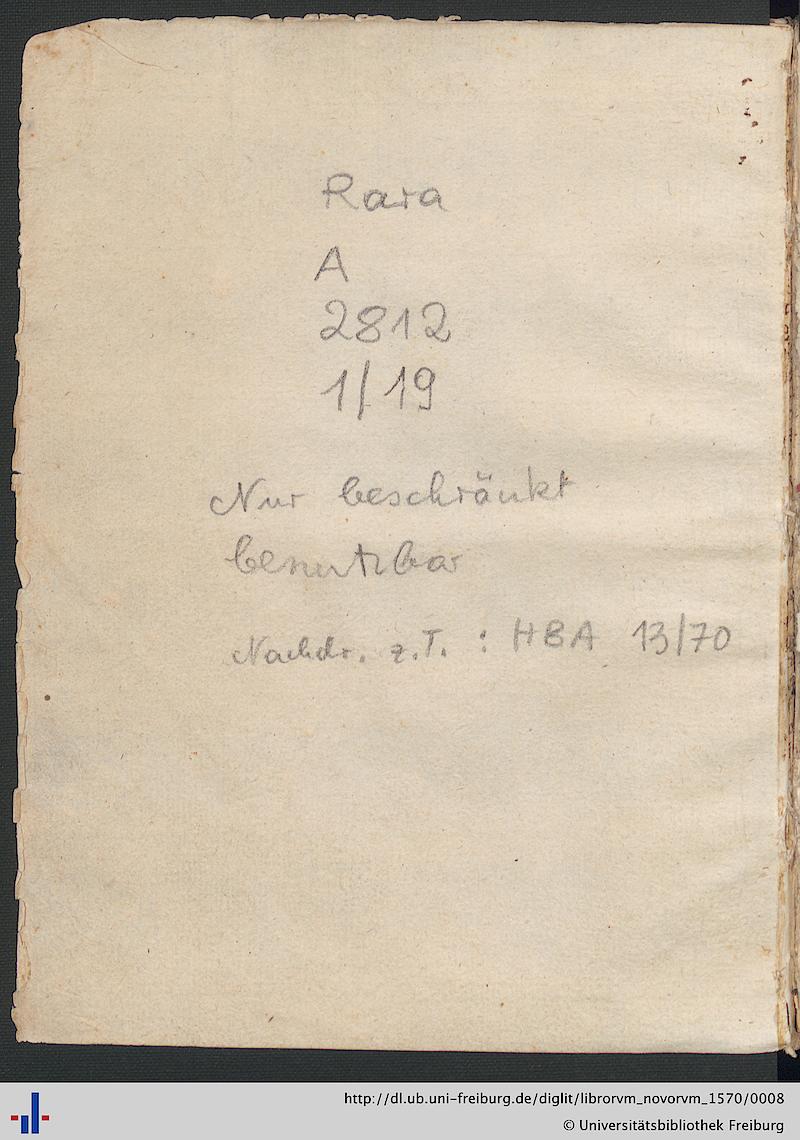 Rara
A
2812
1/19
Nur beschränkt
benutzbar
Nachdr. z.T. : HBA 13/70
http://dl.ub.uni-freiburg.de/diglit/librorvm_novorvm_1570/0008
© Universitätsbibliothek Freiburg